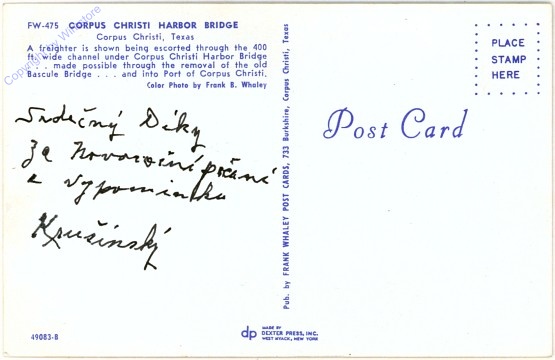 FW-475 CORPUS CHRISTI HARBOR BRIDGE
Corpus Christi, Texas
A freighter is shown being escorted through the 400
ft. wide channel under Corpus Christi Harbor Bridge
. . . made possible through the removal of the old
Bascule Bridge . . . and into Port of Corpus Christi.
Color Photo by Frank B. Whaley
Srdečný Díky
za Novoroční přání
a vzpomínku
Krušinský
49083-B
Pub. by FRANK WHALEY POST CARDS, 733 Burkshire, Corpus Christi, Texas
dp
MADE BY
DEXTER PRESS, INC.
WEST NYACK, NEW YORK
Post Card
PLACE
STAMP
HERE